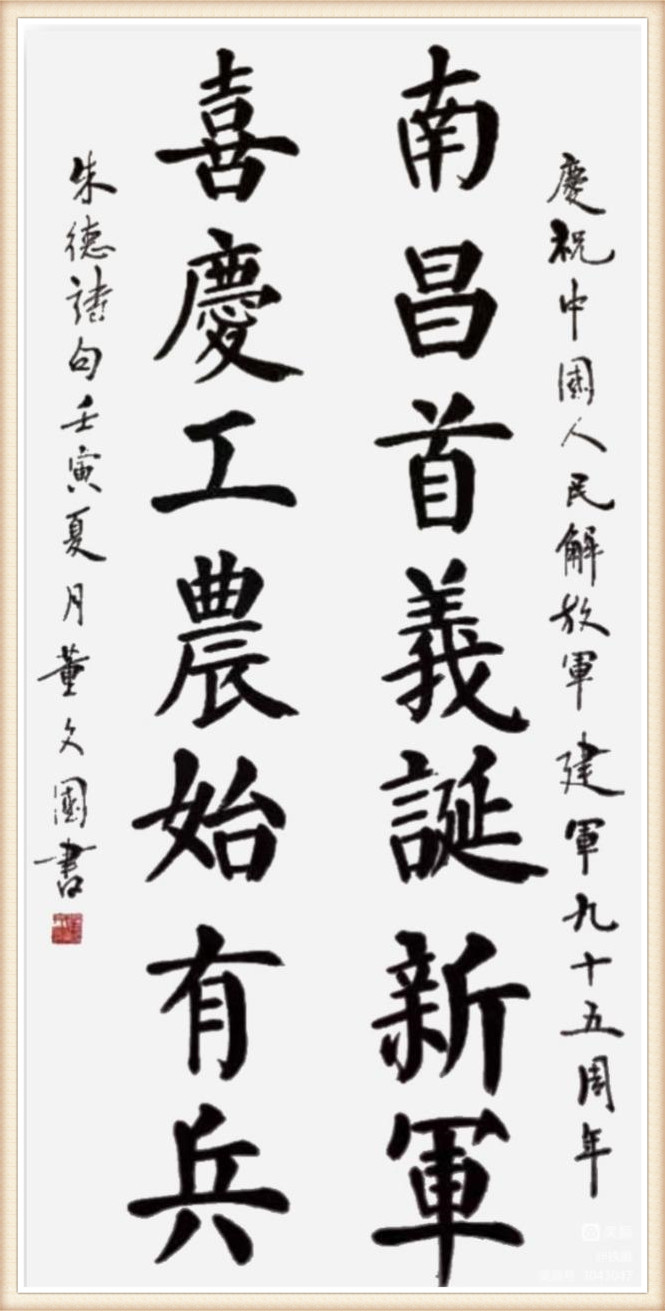 慶祝中國人民解放軍建軍九十五周年
南昌首義誕新軍
喜慶工農始有兵
朱德詩句壬寅夏月董文國書